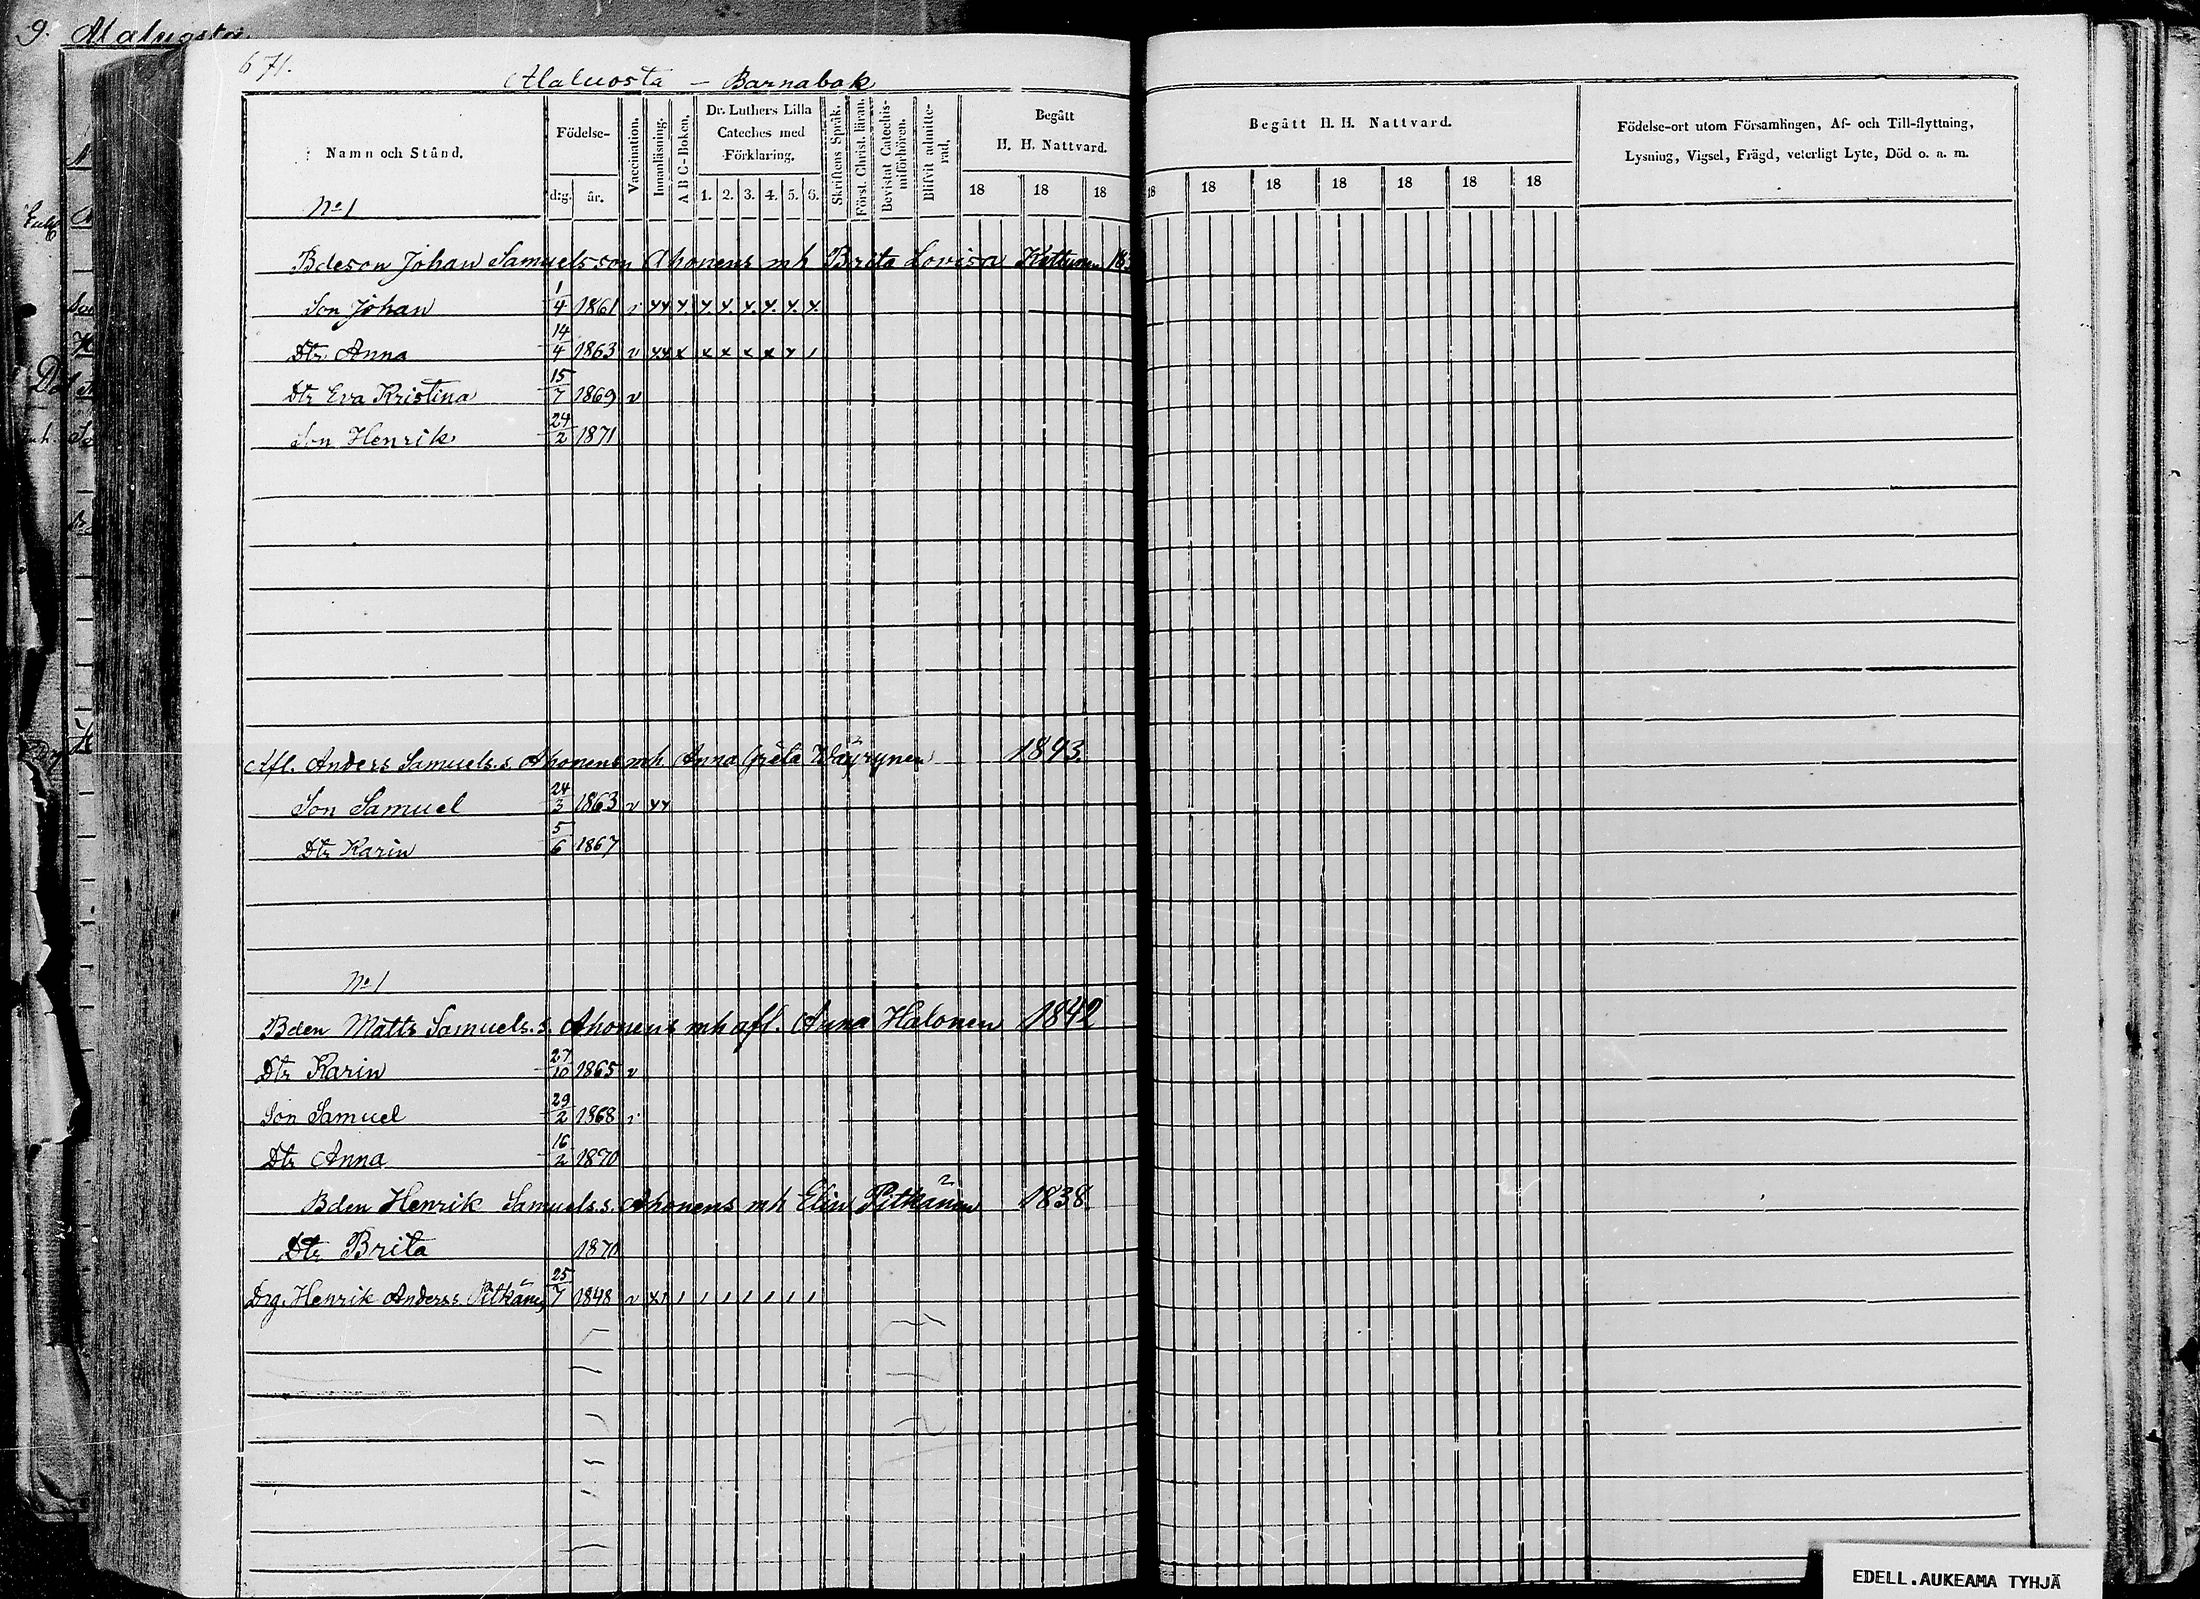 9. Alaluosta
671.
Alaluosta – Barnabok
Namn och Stånd.
Födelse-
dig. år.
Vaccination.
Innanläsning.
A B C-Boken.
Dr. Luthers Lilla Cateches med Förklaring.
1. 2. 3. 4. 5. 6.
Skriftens Språk.
Först. Christ. läran.
Bevistat Catechismiförhören.
Blifvit admitterad.
Begått H. H. Nattvard.
18 18 18
Begått H. H. Nattvard.
18 18 18 18 18 18 18
Födelse-ort utom Församlingen, Af- och Till-flyttning,
Lysning, Vigsel, Frägd, veterligt Lyte, Död o. a. m.
No 1
Bdeson Johan Samuelsson Ahonens mh Brita Lovisa Kettunen 183
Son Johan 1/4 1861 v xx x x x x x x x
Dtr Anna 14/4 1863 v xx x x x x x x /
Dtr Eva Kristina 15/7 1869 v
Son Henrik 24/2 1871
Afl. Anders Samuels.s. Ahonens mh Anna Greta Väyrynen 1843.
Son Samuel 24/3 1863 v xx
Dtr Karin 5/6 1867
No 1
Bden Matts Samuels.s. Ahonens mh afl. Anna Halonen 1842
Dtr Karin 27/10 1865 v
Son Samuel 29/2 1868 v
Dtr Anna 16/2 1870
Bden Henrik Samuels.s. Ahonens mh Elin Pitkänen 1838
Dtr Brita 1870
Drg. Henrik Anders s. Pitkänen 25/7 1848 v x1 / / / / / / /
EDELL.AUKEAMA TYHJÄ